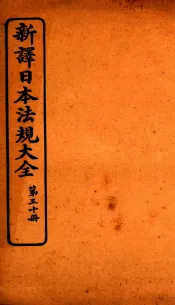 新譯日本法規大全
第三十冊